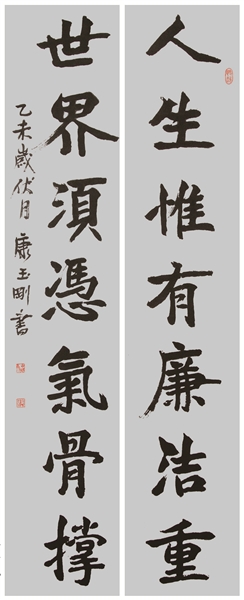 人生惟有廉洁重
世界須憑氣骨撑
乙未歲伏月 康玉剛書